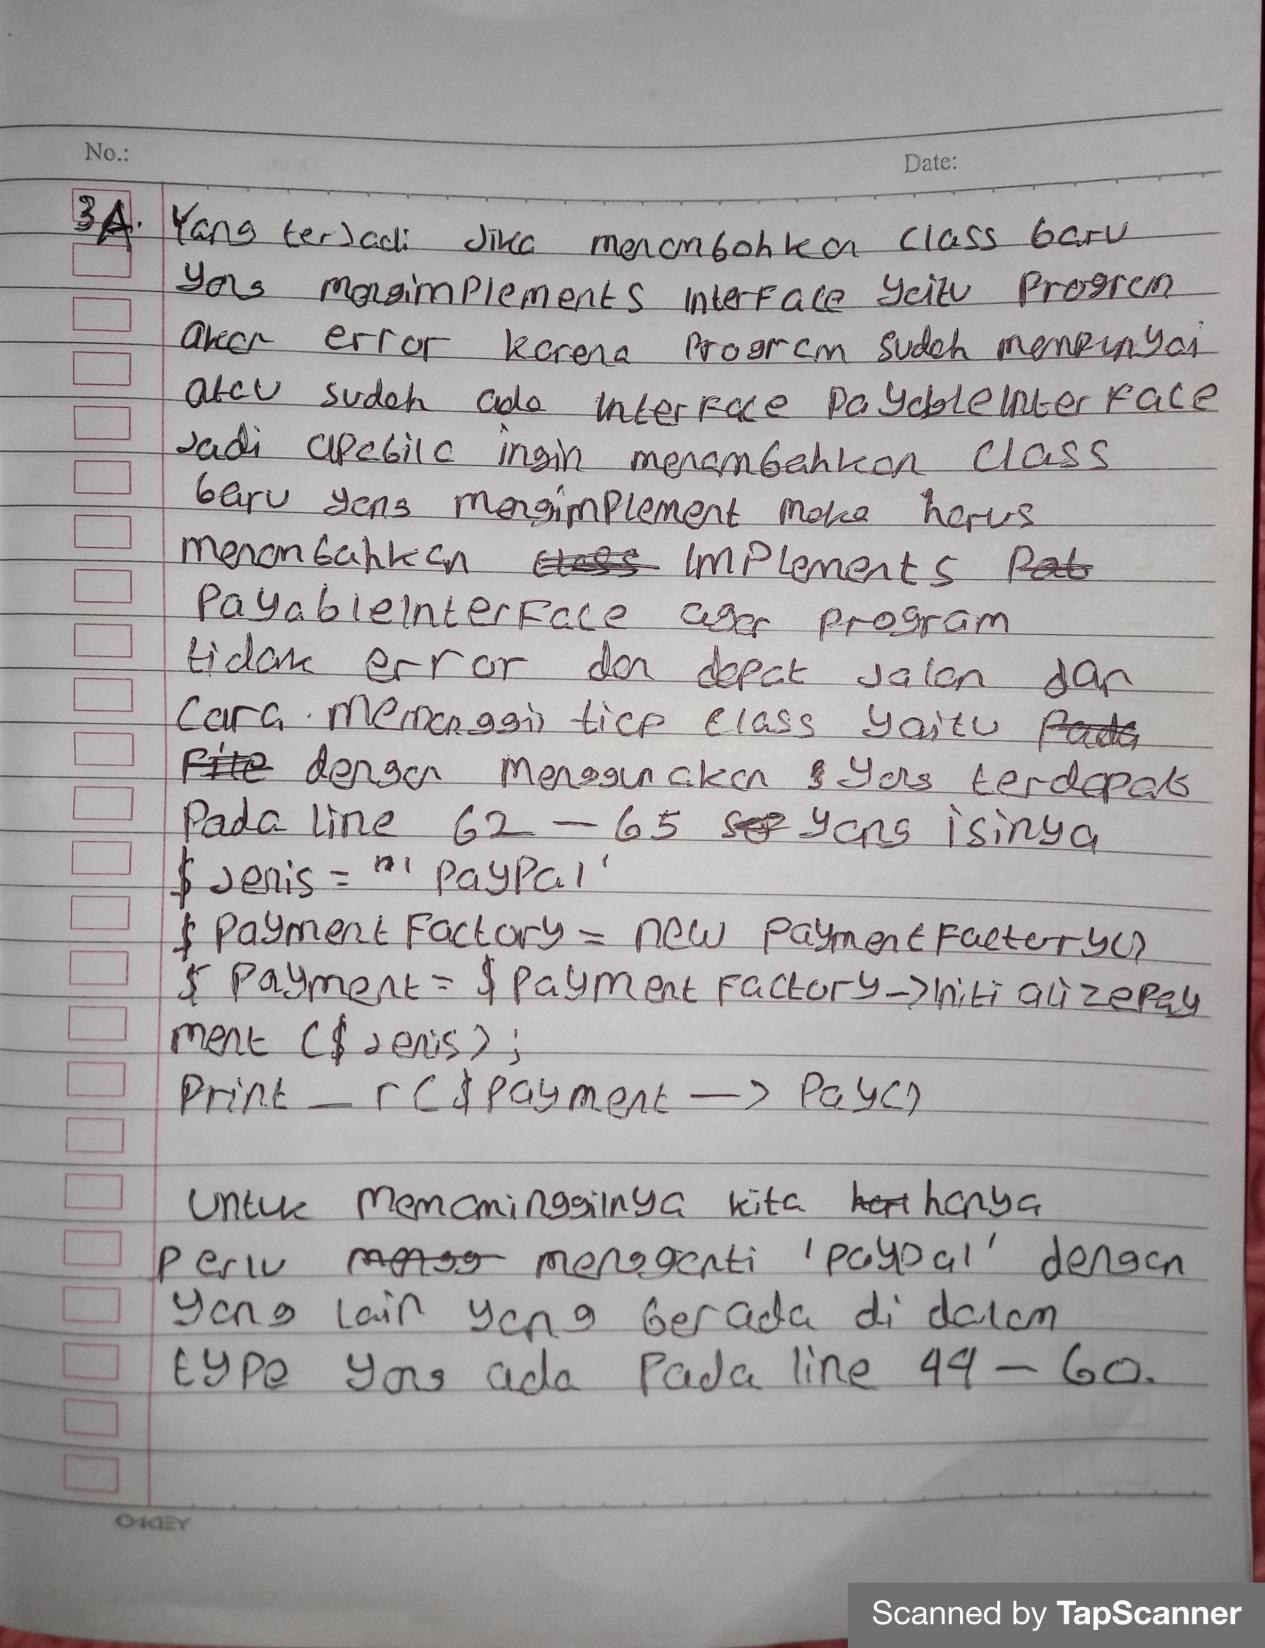 No.:
Date:
3A. Yang terjadi Jika menambahkan class baru
yang mengimplements interface yaitu program
akan error karena program sudah mempunyai
atau sudah ada interface PayableInterface
Jadi apabila ingin menambahkan class
baru yang mengimplement maka harus
menambahkan class implements Pab
PayableInterface agar program
tidak error dan dapat Jalan dan
Cara memanggil tiap class yaitu Pada
File dengan menggunakan $ yang terdapat
Pada line 62 - 65 yang isinya
$ Jenis = "' PayPal'
$ Payment Factory = new PaymentFactory()
$ Payment = $ Payment Factory->Initializepay
ment ($ Jenis);
Print_r($Payment -> Pay()
Untuk memaminggilnya kita hanya
Perlu mengganti 'paypal' dengan
yang lain yang berada di dalam
type yang ada Pada line 49 - 60.
OKEY
Scanned by TapScanner